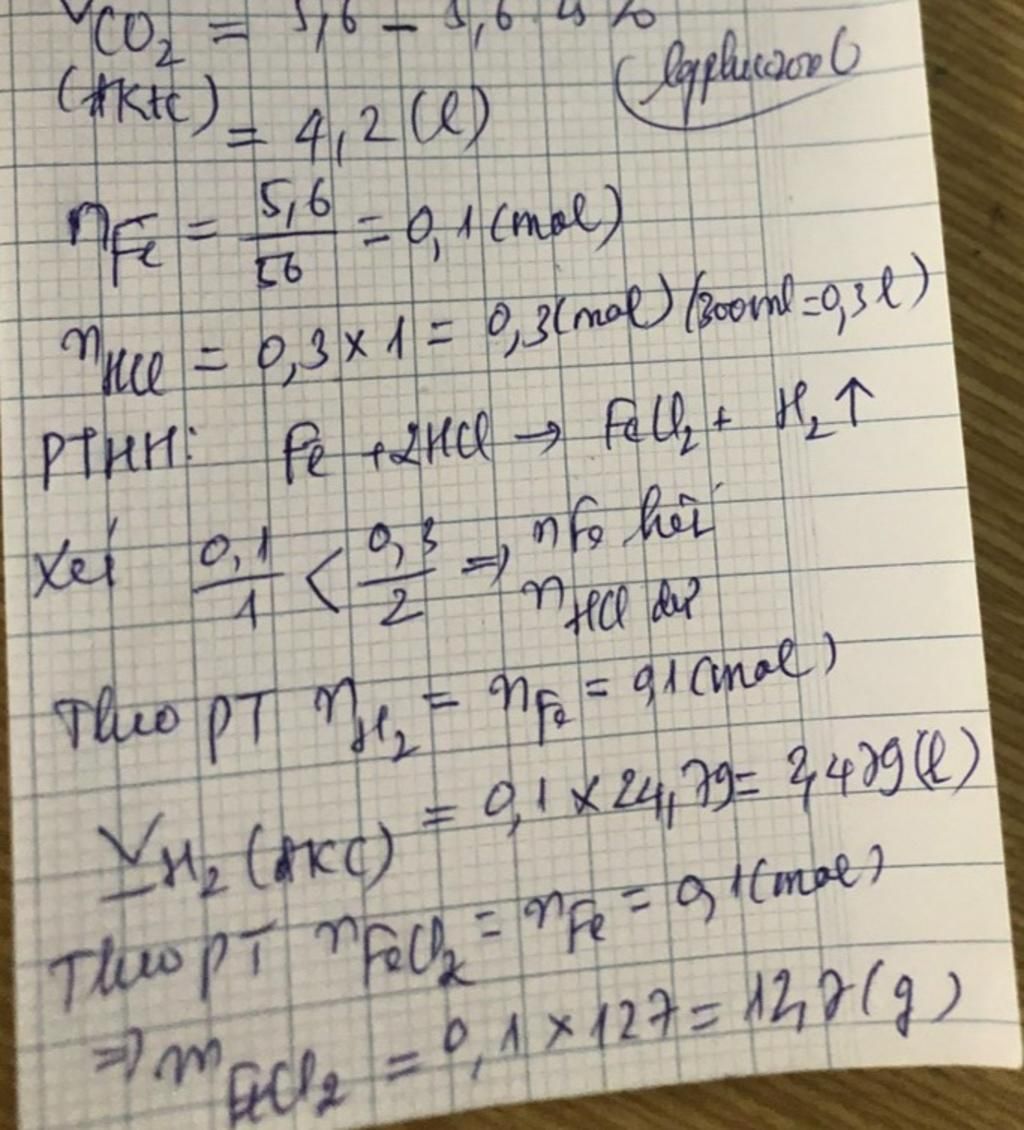 VCO₂ = 5,6 - 5,6
(đktc) = 4,2 (l)
nFe = 5,6/56 = 0,1 (mol)
nHCl = 0,3 x 1 = 0,3 (mol) (300ml = 0,3 l)
PTHH: Fe + 2HCl → FeCl₂ + H₂ ↑
Xét 0,1/1 < 0,3/2 => nFe hết
nHCl dư
Theo PT nH₂ = nFe = 0,1 (mol)
VH₂ (đKC) = 0,1 x 24,79 = 2,479 (l)
Theo PT nFeCl₂ = nFe = 0,1 (mol)
=> mFeCl₂ = 0,1 x 127 = 12,7 (g)